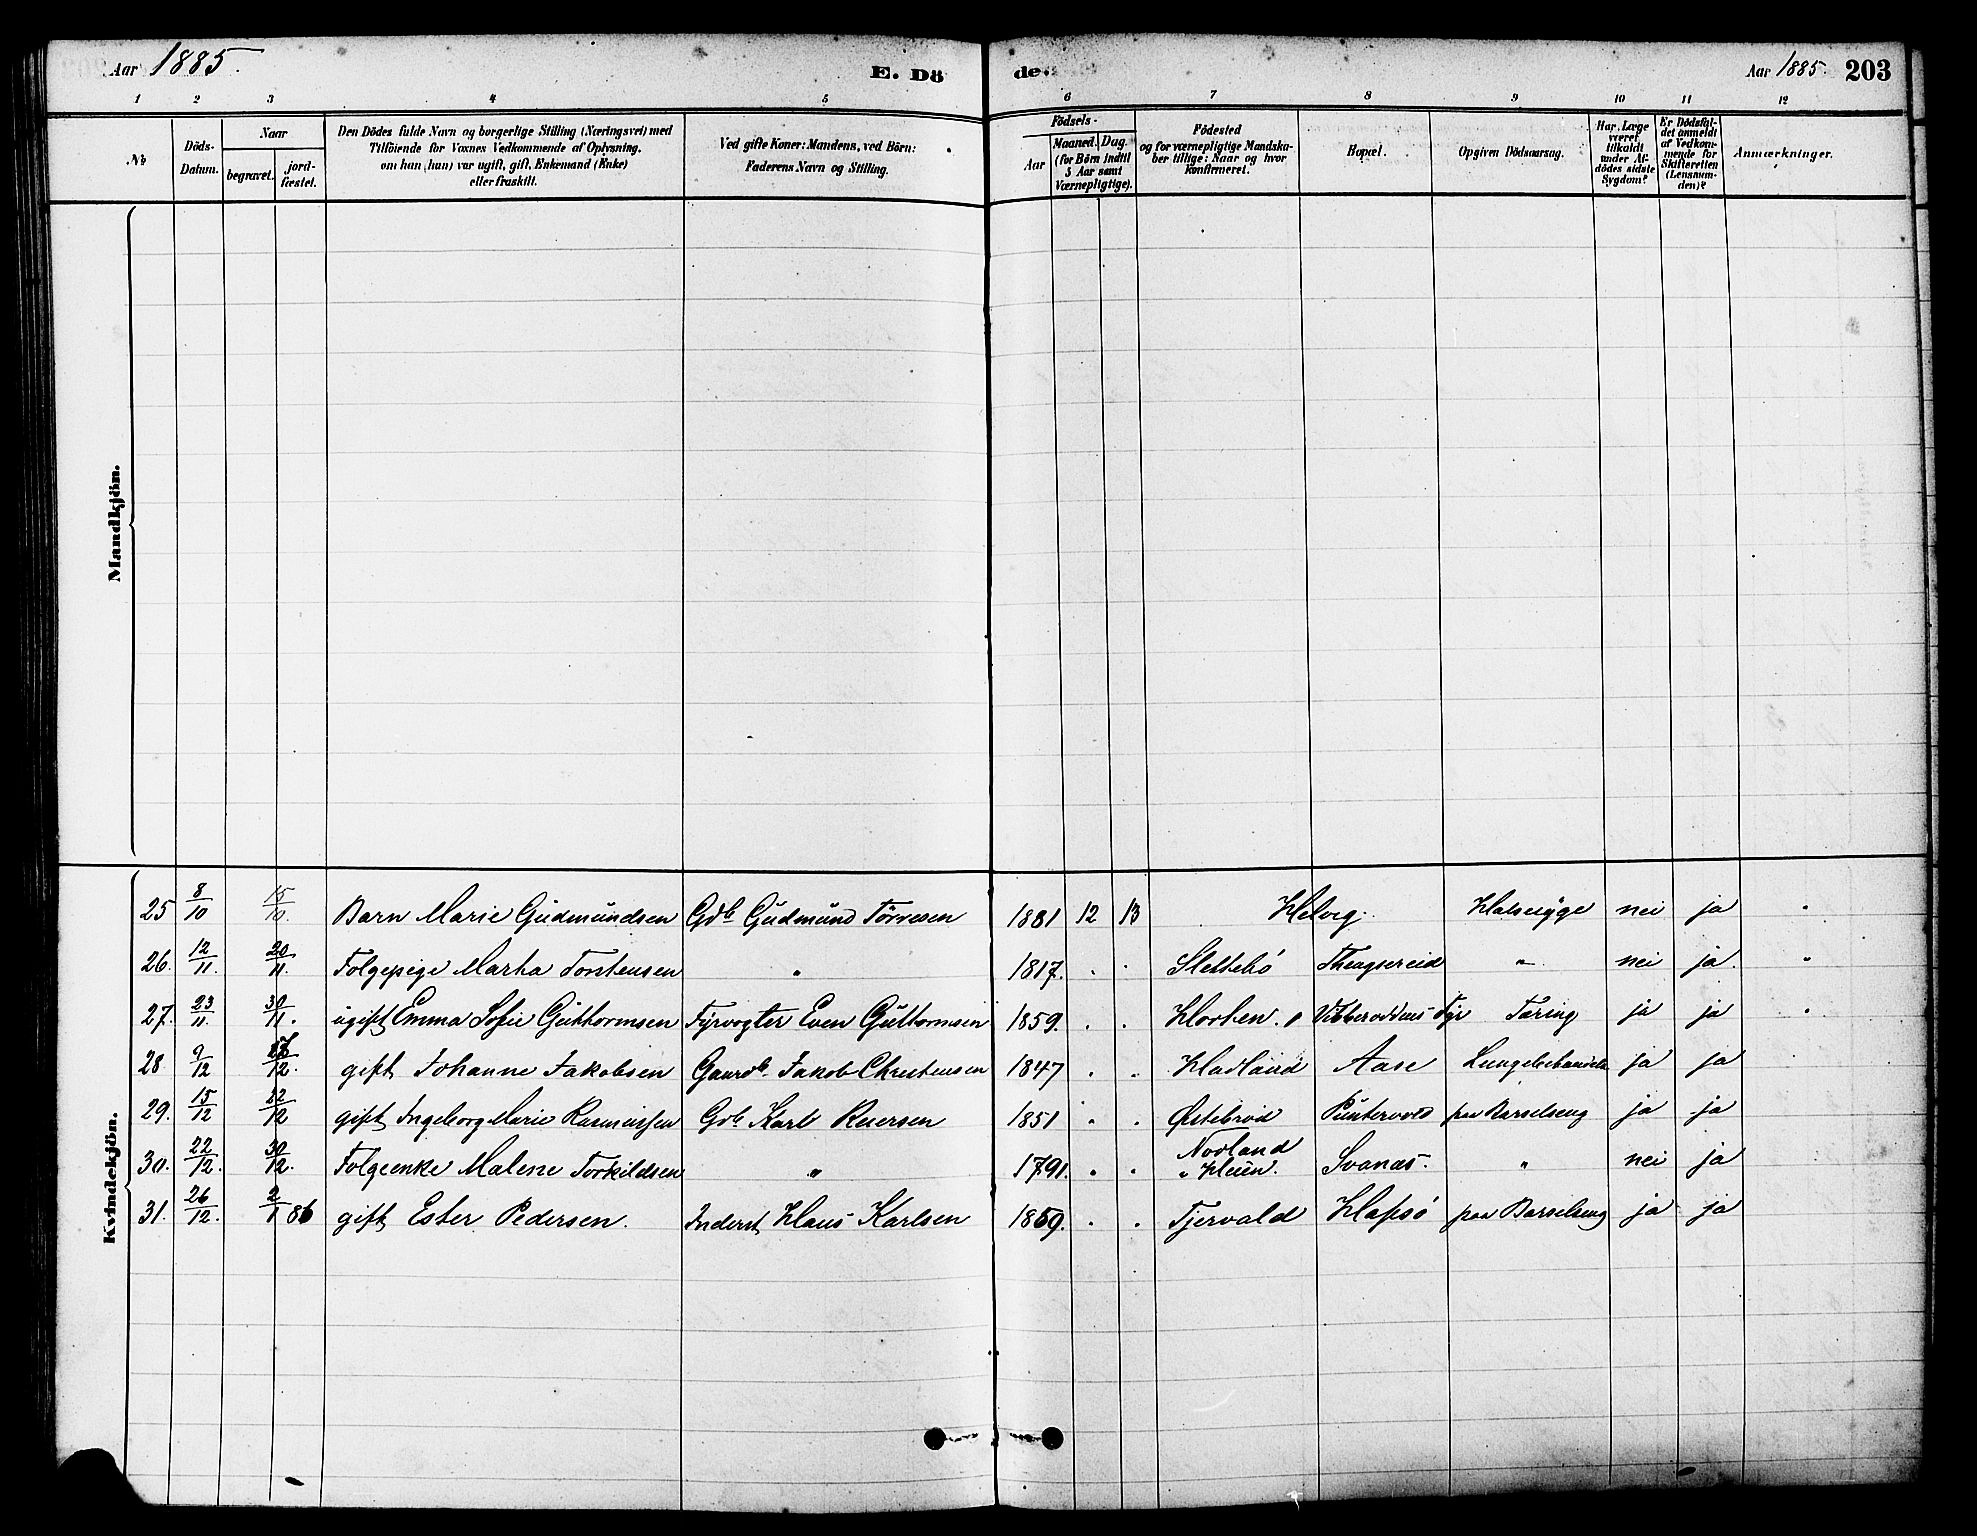 Aar 1885. E. Dö de. Aar 1885. 203
1 2 3 4 5 6 7 8 9 10 11 12
No
Döds-
Datum.
Naar
begravet.
jord-
fæstet.
Den Dödes fulde Navn og borgerlige Stilling (Næringsvei) med
Tilföiende for Voxnes Vedkommende af Oplysning.
om han (hun) var ugift, gift, Enkemand (Enke)
eller fraskilt.
Ved gifte Koner: Mandens, ved Börn:
Faderens Navn og Stilling.
Födsels-
Aar
Maaned. Dag.
(for Börn indtil
5 Aar samt
Værnepligtige).
Födested
og for værnepligtige Mandska-
ber tillige: Naar og hvor
konfirmeret.
Bopæl.
Opgiven Dödsaarsag.
Har Læge
været
tilkaldt
under Af-
dödes sidste
Sygdom?
Er Dödsfal-
det anmeldt
af Vedkom-
mende for
Skifteretten
(Lensman-
den)?
Anmærkninger.
Mandkjön.
Kvindekjön.
25 8/10 15/10. Barn Marie Gudmundsen Gdb Gudmund Törresen 1881 12 13 Helvig. Halssyge nei ja "
26. 12/11. 20/11. Folgepige Marta Torstensen " 1817. . . Slettebö " nei ja. "
27. 23/11. 30/11. ugift Emma Sofie Guthormsen Fyrvogter Even Guthormsen 1859. . . Vibberoddens Fyr Tæring ja ja "
28 9/12 12. gift Johanne Jakobsen Gaardb. Jakob Christensen 1847 . . Hadland Aase ja ja
29. 15/12 22/12 gift Ingeborg Marie Rasmussen Gdb Karl Reiersen 1851 . . Østebröd paa Barselseng ja ja
30. 22/12. 30/12. Folgeenke Malene Torkildsen " 1791. . . Svanæs. " nei ja
31. 26/12. 2/1 86 gift Ester Pedersen. Inderst Klaus Karlsen 1859. . . Tjervald Hafsö paa Barselseng ja ja